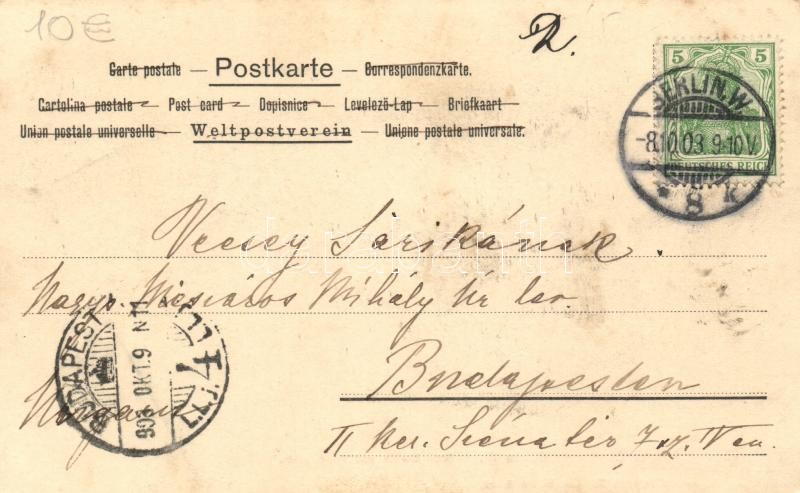 10 €
R.
Carte postale — Postkarte — Correspondenzkarte.
Cartolina postale — Post card — Dopisnice — Levelező-Lap — Briefkaart —
Union postale universelle — Weltpostverein — Unione postale universale.
5 5
DEUTSCHES REICH
BERLIN. W
-8.10.03. 9-10V.
* 8 k
Vecsey Sárikának
Mihály Úr lev.
Budapesten
II ker. Széna tér 7 sz. IV em.
Hungaria
BUDAPEST
903 OKT. 9 N 11